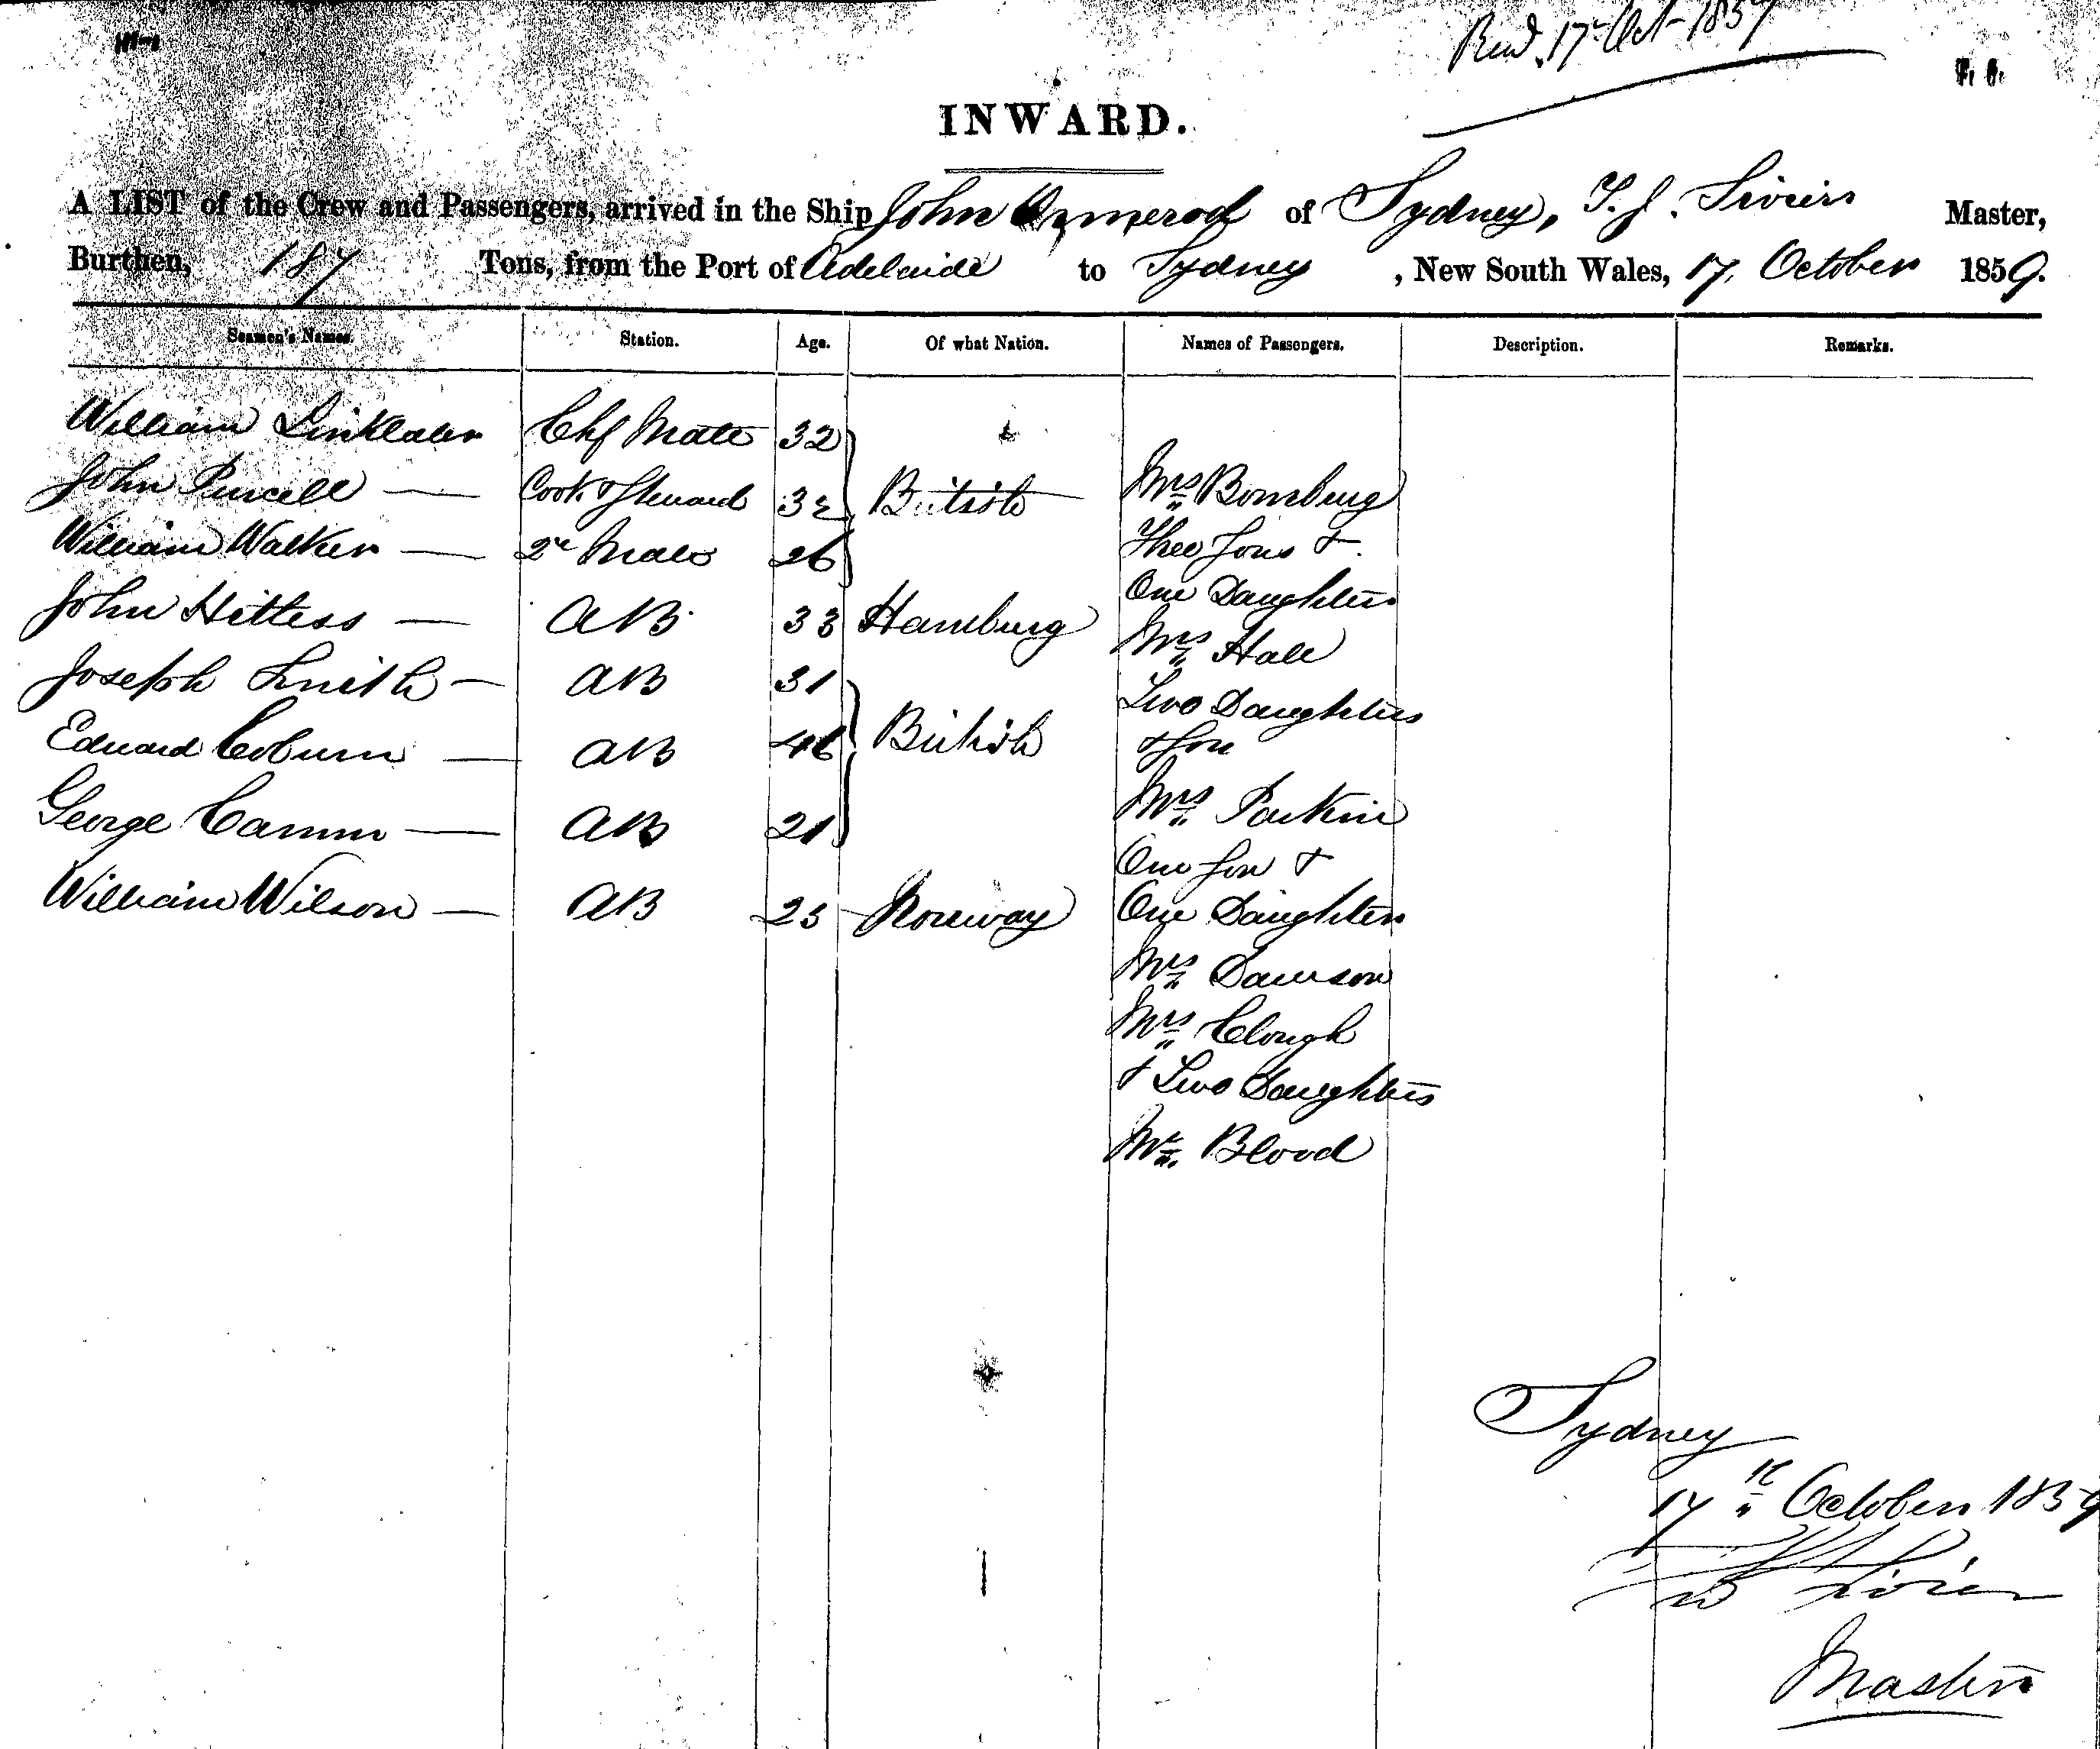 17 Oct 1859
INWARD.
A LIST of the Crew and Passengers, arrived in the Ship John Ormerod of Sydney, T. J. Master,
Burthen, 187 Tons, from the Port of Adelaide to Sydney, New South Wales, 17, October 1859.
Seamen's Names. Station. Age. Of what Nation. Names of Passengers. Description. Remarks.
William Linklater Chf Mate 32
John Purcell — Cook & Steward 32 British Mrs Bomburg
William Walker — 2d Mate 26 Three Sons &
One Daughter
John Hittess — AB 33 Hamburg Mrs Hall
Joseph Smith — AB 31 Two Daughters
Edward Coburn — AB 46 British & Son
George Camm — AB 21 Mrs Parkin
One Son &
William Wilson — AB 23 Norway One Daughter
Mrs Dawson
Mrs Clough
& Two Daughters
Mr. Blood
Sydney
17th October 1859
Master